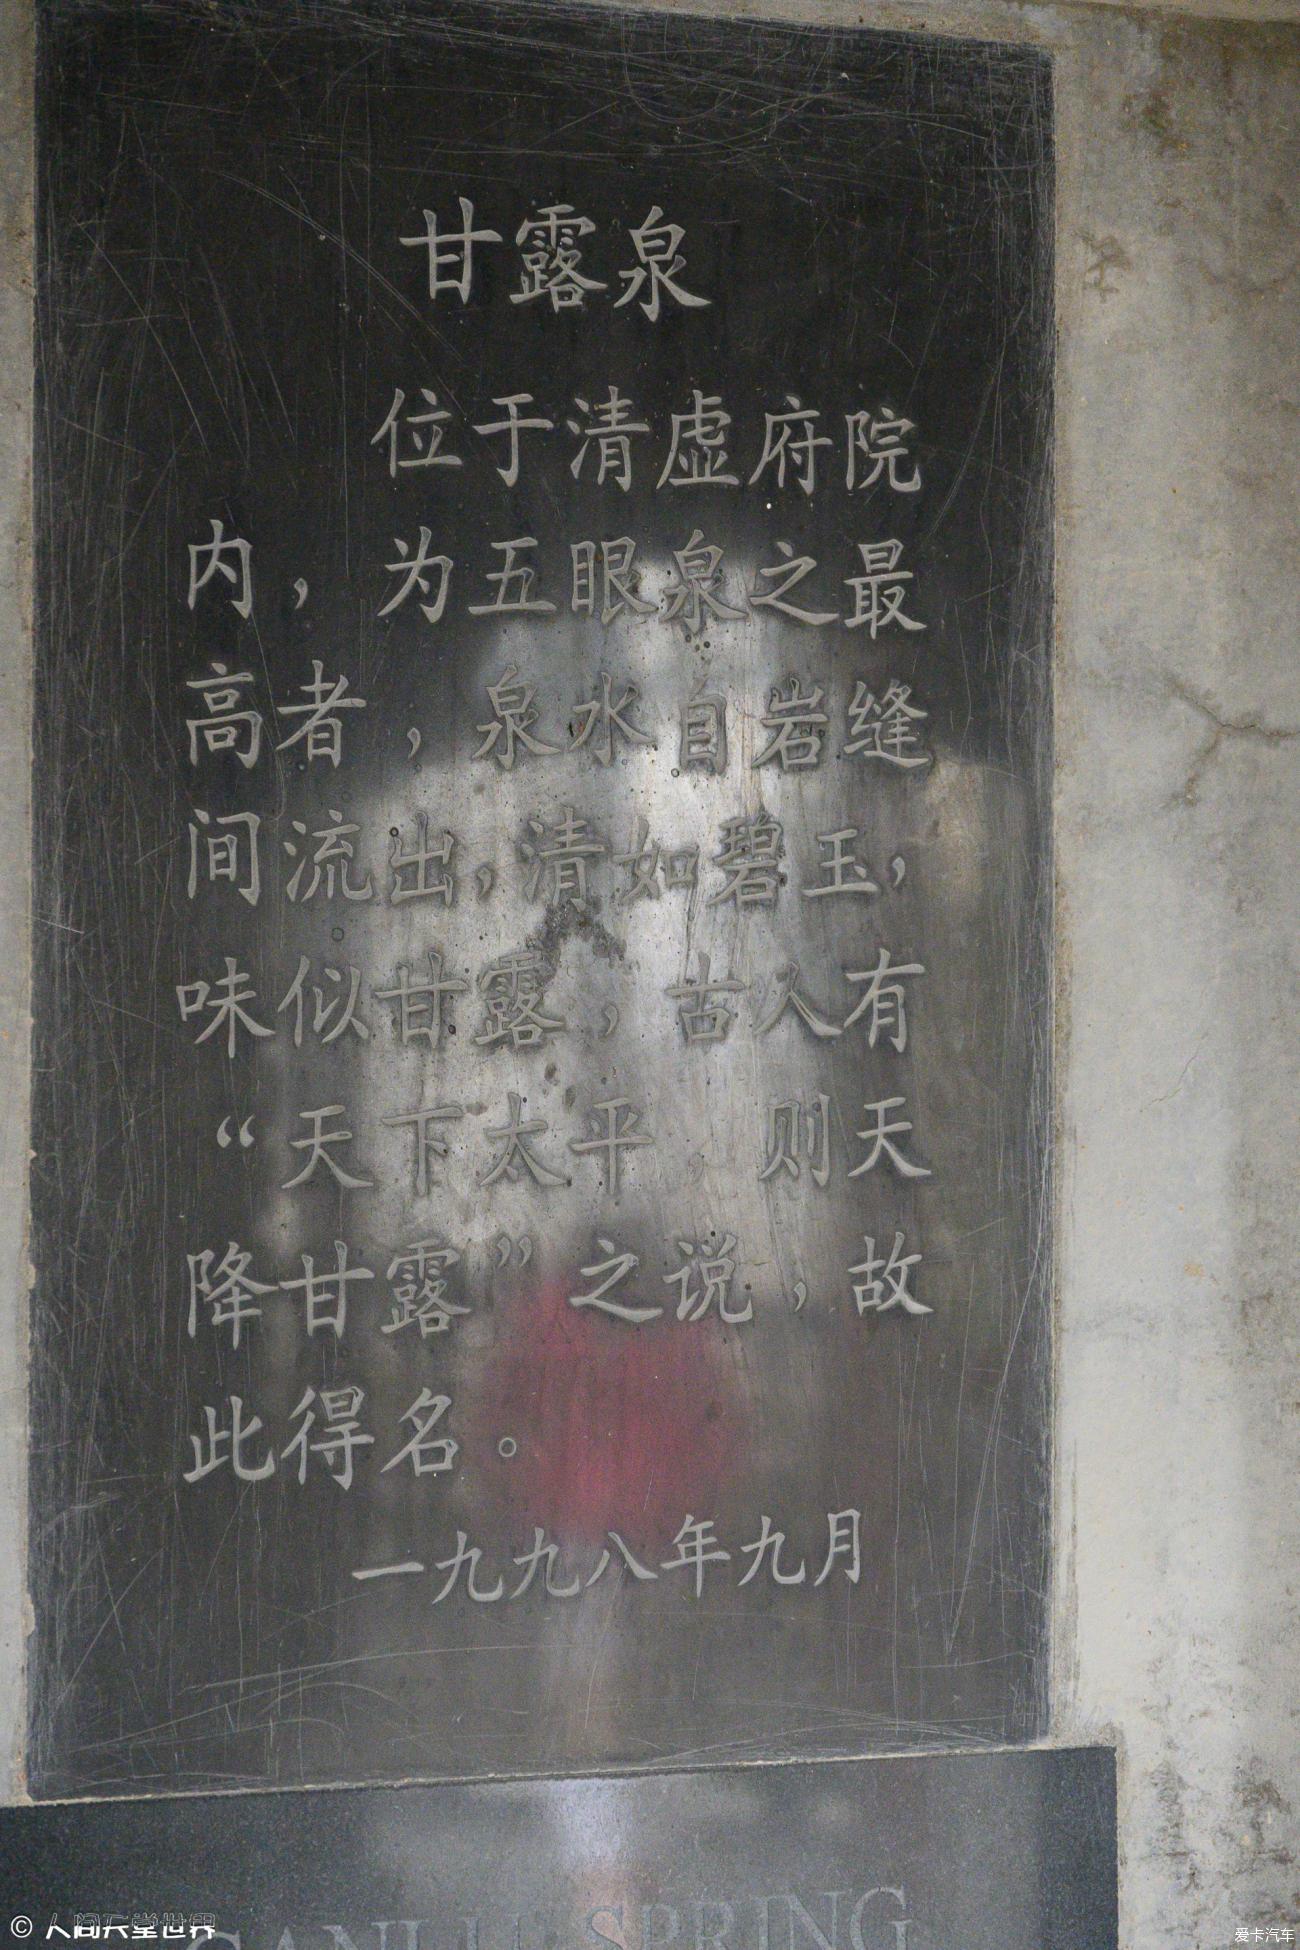 甘露泉
位于清虚府院
内，为五眼泉之最
高者，泉水自岩缝
间流出，清如碧玉，
味似甘露，古人有
“天下太平，则天
降甘露”之说，故
此得名。
一九九八年九月
GANLU SPRING
© 人间天堂世界
爱卡汽车